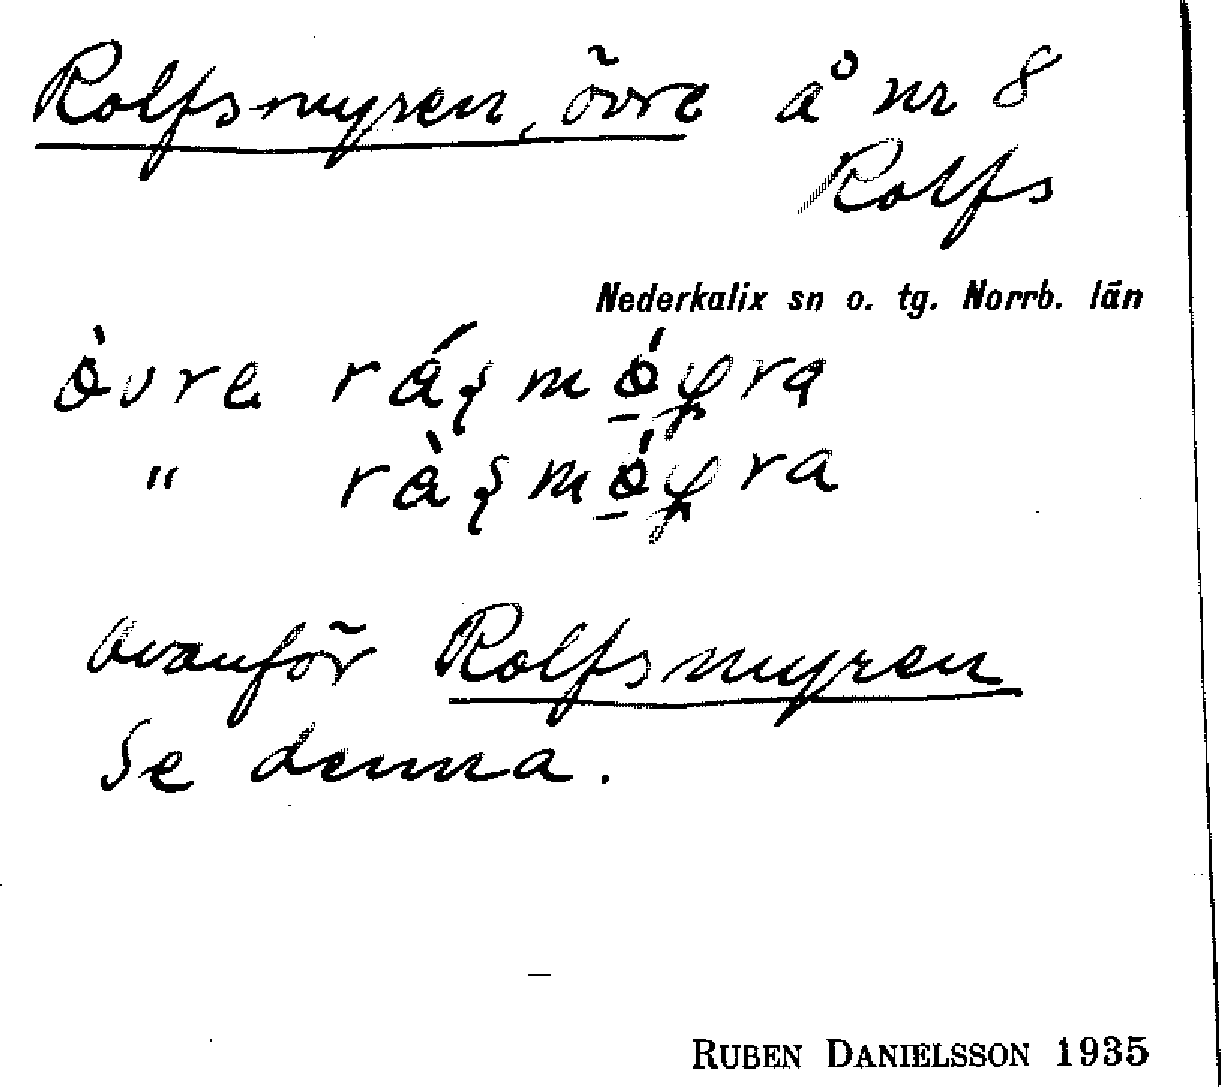 Rolfsmyren, övre å nr 8
Rolfs
Nederkalix sn o. tg. Norrb. län
övre
"
ovanför Rolfsmyren
Se denna.
RUBEN DANIELSSON 1935